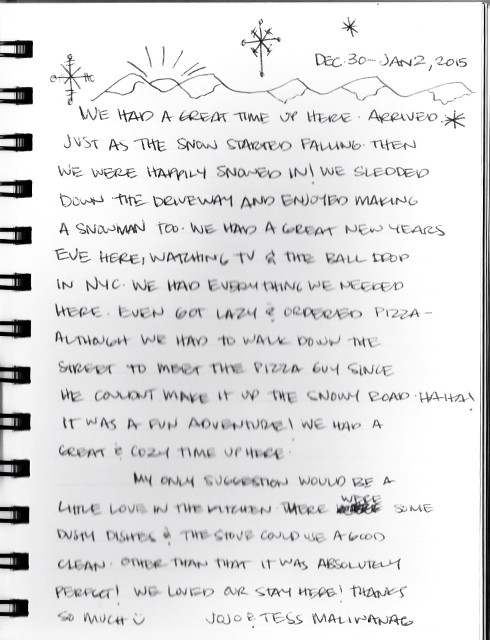 DEC. 30 - JAN 2, 2015
WE HAD A GREAT TIME UP HERE. ARRIVED
JUST AS THE SNOW STARTED FALLING. THEN
WE WERE HAPPILY SNOWED IN! WE SLEDDED
DOWN THE DRIVEWAY AND ENJOYED MAKING
A SNOWMAN TOO. WE HAD A GREAT NEW YEARS
EVE HERE, WATCHING TV & THE BALL DROP
IN NYC. WE HAD EVERYTHING WE NEEDED
HERE. EVEN GOT LAZY & ORDERED PIZZA -
ALTHOUGH WE HAD TO WALK DOWN THE
STREET TO MEET THE PIZZA GUY SINCE
HE COULDNT MAKE IT UP THE SNOWY ROAD. HA HA!
IT WAS A FUN ADVENTURE! WE HAD A
GREAT & COZY TIME UP HERE.
MY ONLY SUGGESTION WOULD BE A
LITTLE LOVE IN THE KITCHEN. THERE WERE SOME
DUSTY DISHES & THE STOVE COULD USE A GOOD
CLEAN. OTHER THAN THAT IT WAS ABSOLUTELY
PERFECT! WE LOVED OUR STAY HERE! THANKS
SO MUCH JOJO & TESS MALIWANAG